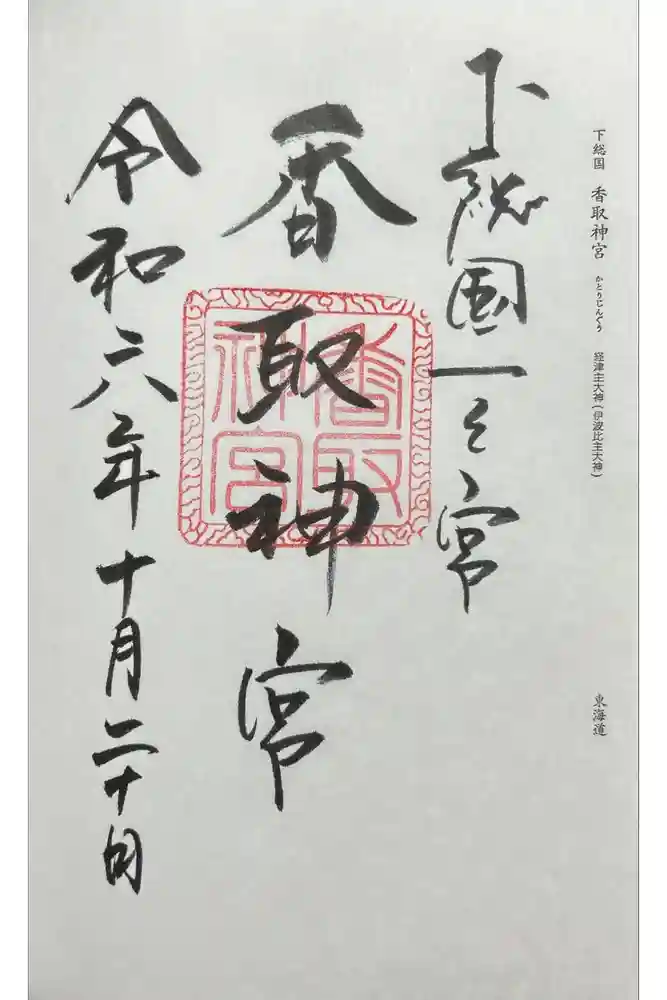 下総国 香取神宮 かとりじんぐう 経津主大神(伊波比主大神)
東海道
下総国一之宮
香取神宮
香取神宮
令和六年十月二十日